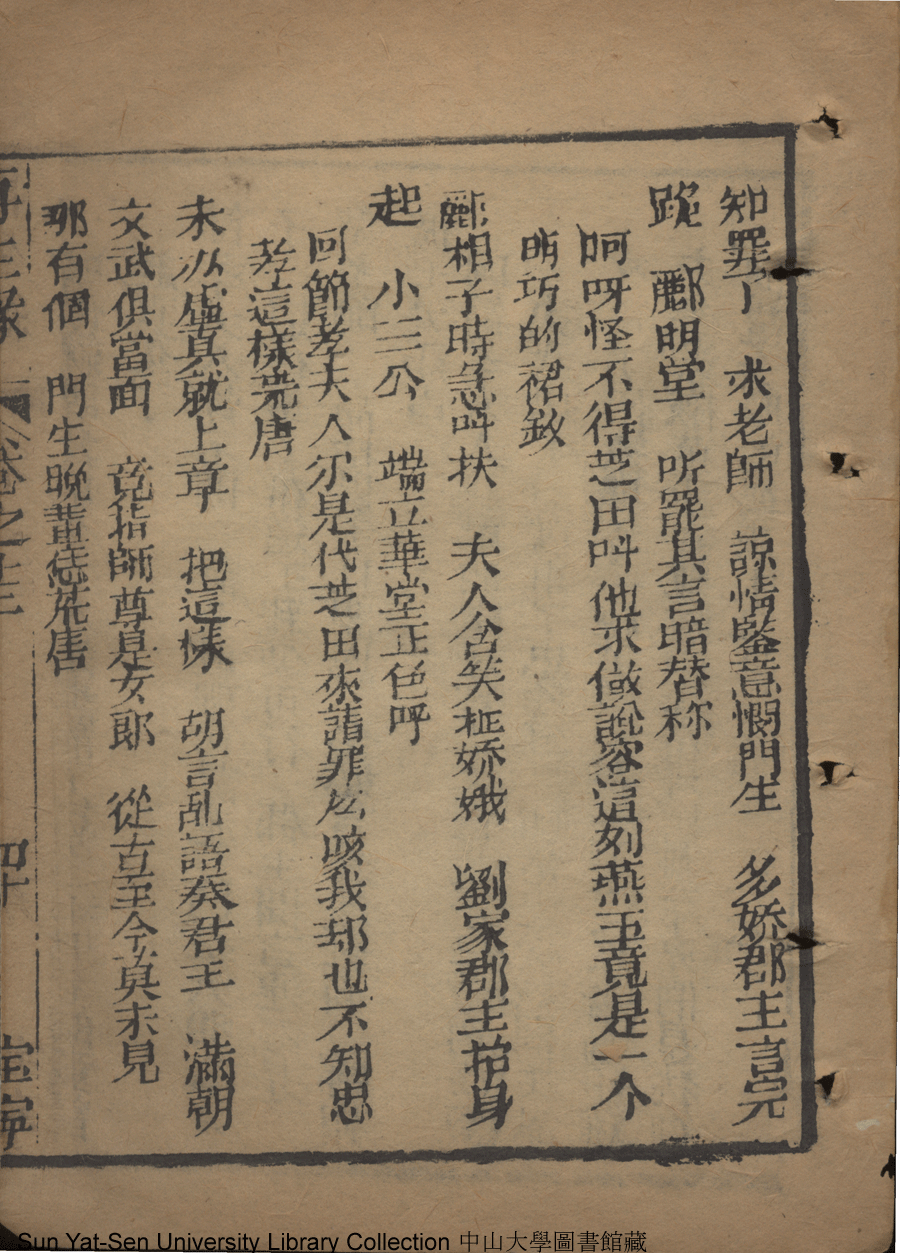 知罪了 求老師 諒情鑒意憫門生 多娇郡主言完
跪 酈明堂 听罷其言暗替称
呵呀怪不得芝田叫他來做說客這刻燕王竟是一个
明巧的裙釵
酈相子時急叫扶 夫人含笑抠娇娥 劉家郡主抬身
起 小三公 端立華堂正色呼
回節孝夫人尔是代芝田來請罪庅咳我却也不知忠
孝這樣荒唐
未必虛真就上章 把這樣 胡言乱語奏君王 滿朝
文武俱當面 竟指師尊是女郎 從古至今真未見
那有個 門生晚輩恁荒唐
卷之十三
四十
宝寧
Sun Yat-Sen University Library Collection 中山大學圖書館藏